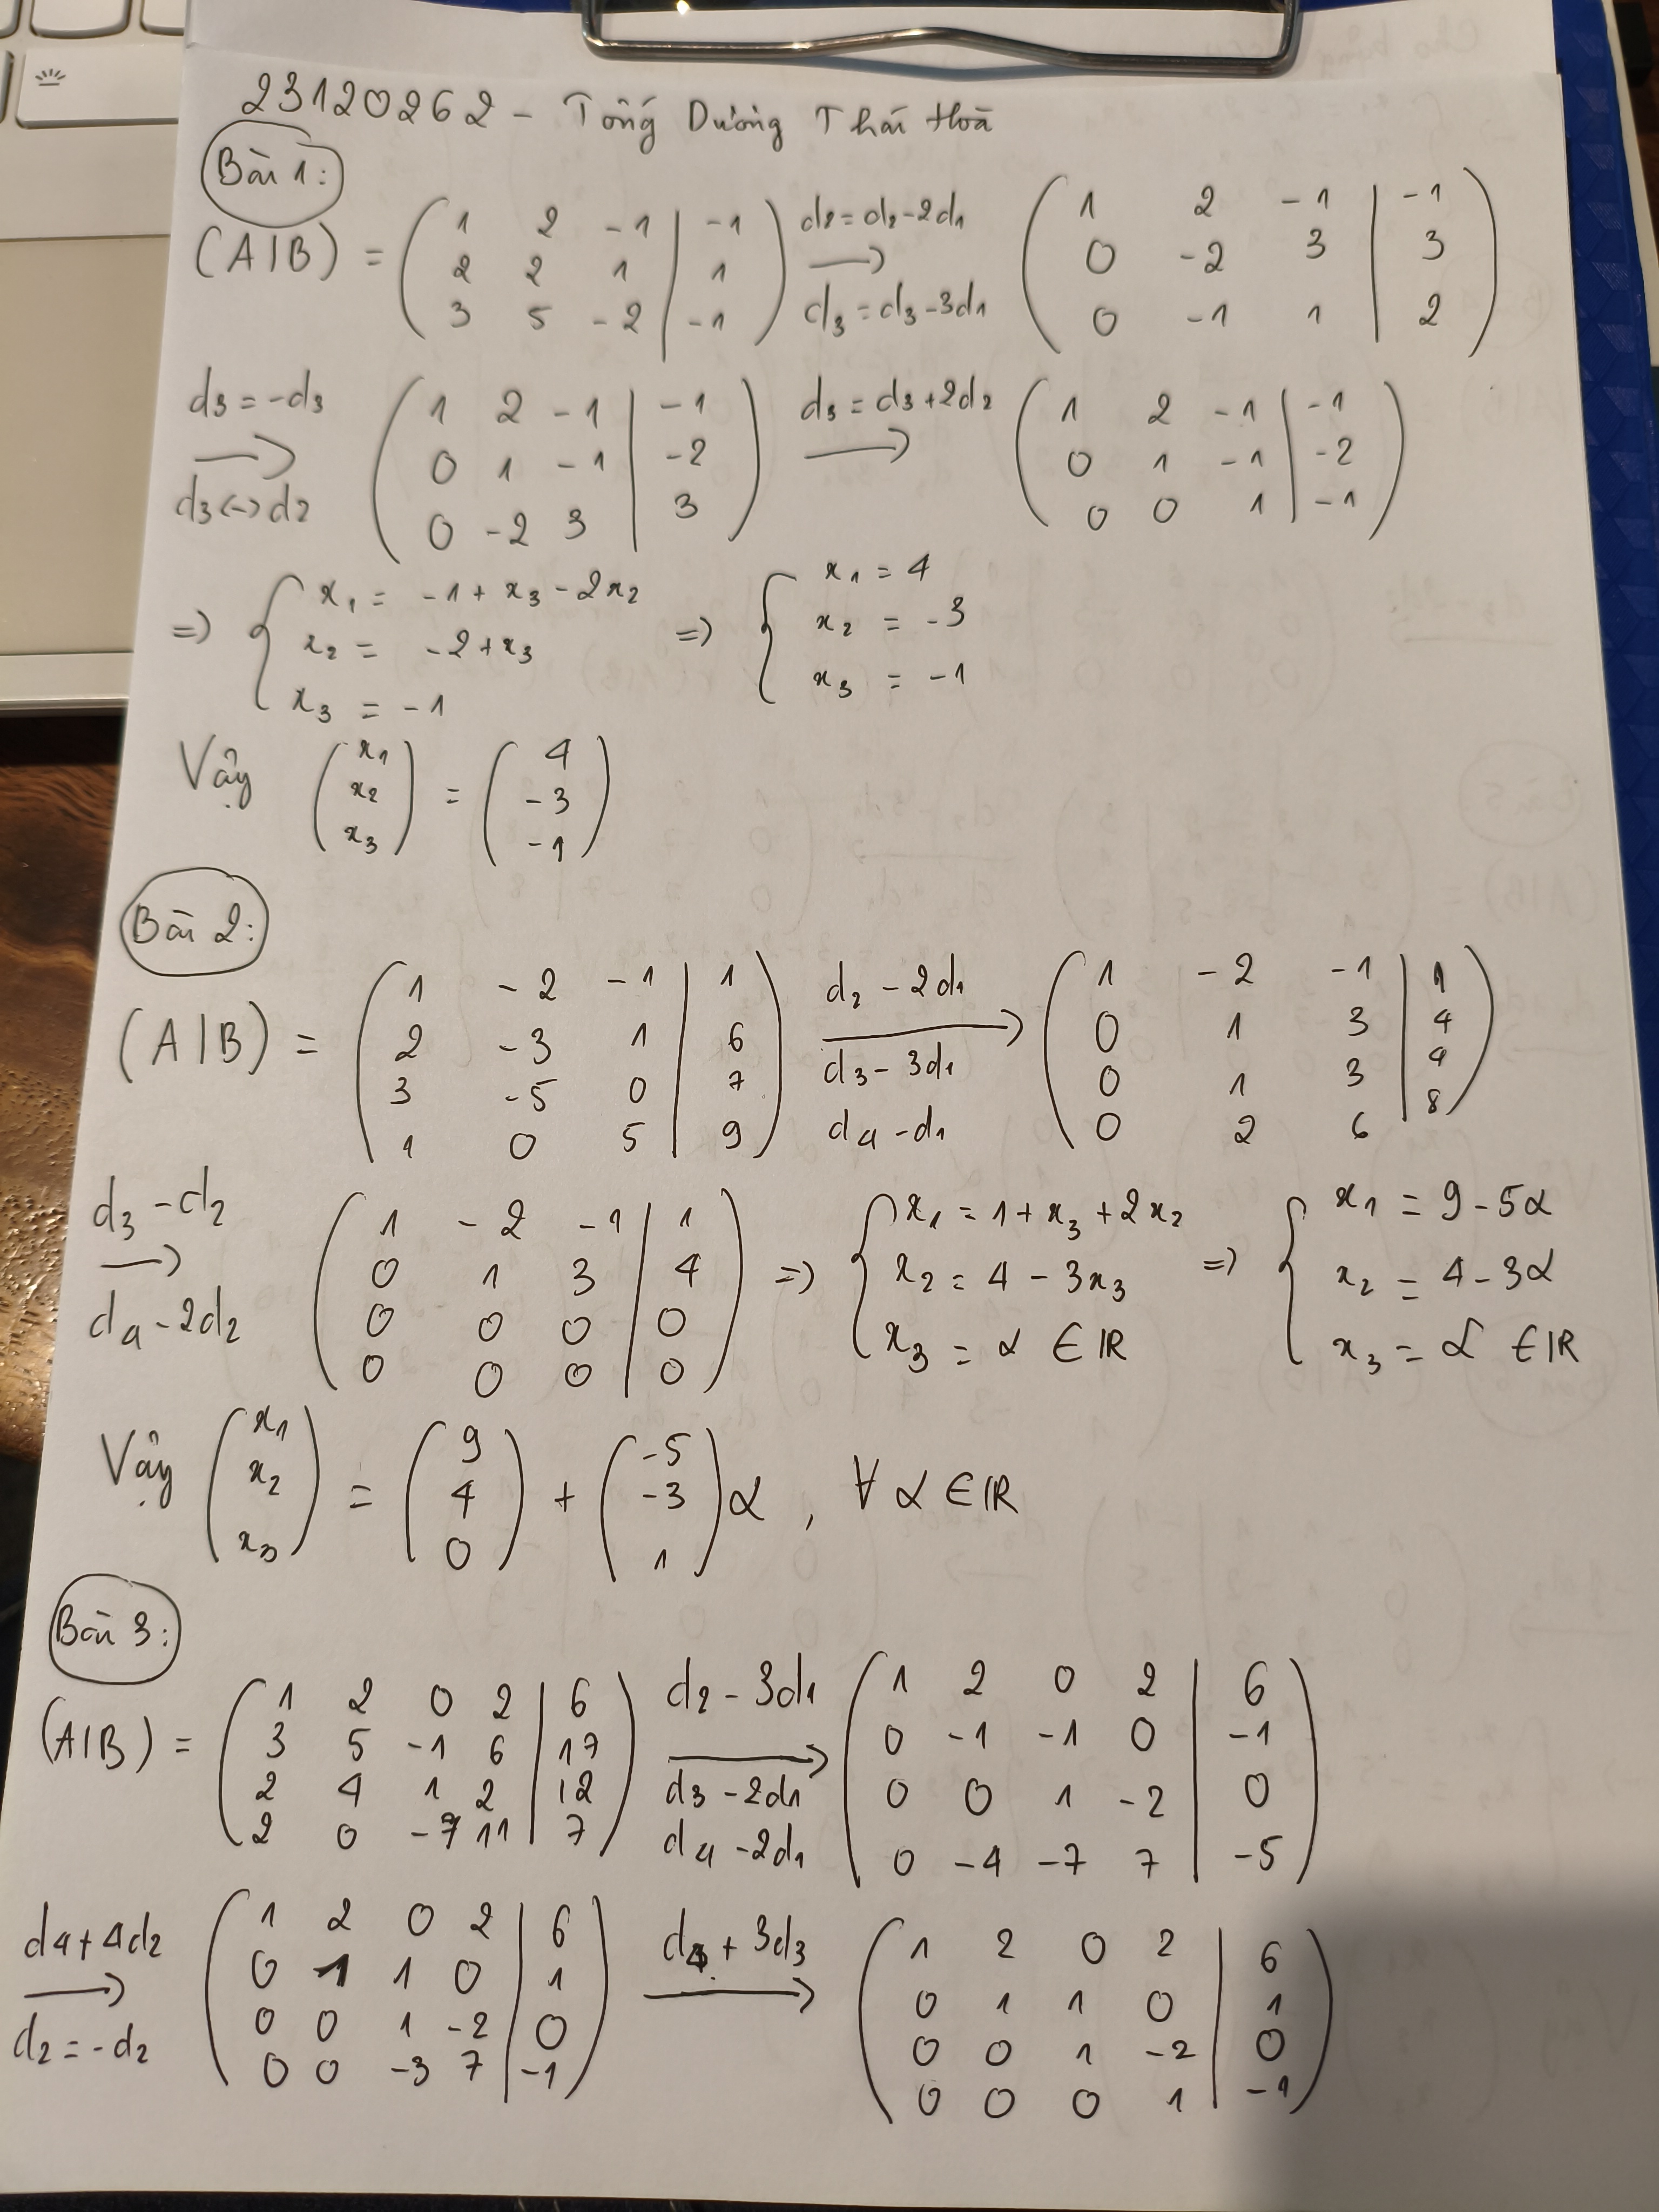 23120262 - Tống Dương Thái Hoà
Bài 1:
(A|B) = ( 1 2 -1 | -1 ; 2 2 1 | 1 ; 3 5 -2 | -1 ) d2 = d2 - 2d1 → d3 = d3 - 3d1 ( 1 2 -1 | -1 ; 0 -2 3 | 3 ; 0 -1 1 | 2 )
d3 = -d3 → d3 <-> d2 ( 1 2 -1 | -1 ; 0 1 -1 | -2 ; 0 -2 3 | 3 ) d3 = d3 + 2d2 → ( 1 2 -1 | -1 ; 0 1 -1 | -2 ; 0 0 1 | -1 )
=> { x1 = -1 + x3 - 2x2 ; x2 = -2 + x3 ; x3 = -1 => { x1 = 4 ; x2 = -3 ; x3 = -1
Vậy ( x1 ; x2 ; x3 ) = ( 4 ; -3 ; -1 )
Bài 2:
(A|B) = ( 1 -2 -1 | 1 ; 2 -3 1 | 6 ; 3 -5 0 | 7 ; 1 0 5 | 9 ) d2 - 2d1 → d3 - 3d1 d4 - d1 ( 1 -2 -1 | 1 ; 0 1 3 | 4 ; 0 1 3 | 4 ; 0 2 6 | 8 )
d3 - d2 → d4 - 2d2 ( 1 -2 -1 | 1 ; 0 1 3 | 4 ; 0 0 0 | 0 ; 0 0 0 | 0 ) => { x1 = 1 + x3 + 2x2 ; x2 = 4 - 3x3 ; x3 = α ∈ ℝ => { x1 = 9 - 5α ; x2 = 4 - 3α ; x3 = α ∈ ℝ
Vậy ( x1 ; x2 ; x3 ) = ( 9 ; 4 ; 0 ) + ( -5 ; -3 ; 1 ) α , ∀ α ∈ ℝ
Bài 3:
(A|B) = ( 1 2 0 2 | 6 ; 3 5 -1 6 | 17 ; 2 4 1 2 | 12 ; 2 0 -7 11 | 7 ) d2 - 3d1 → d3 - 2d1 d4 - 2d1 ( 1 2 0 2 | 6 ; 0 -1 -1 0 | -1 ; 0 0 1 -2 | 0 ; 0 -4 -7 7 | -5 )
d4 + 4d2 → d2 = -d2 ( 1 2 0 2 | 6 ; 0 1 1 0 | 1 ; 0 0 1 -2 | 0 ; 0 0 -3 7 | -1 ) d4 + 3d3 → ( 1 2 0 2 | 6 ; 0 1 1 0 | 1 ; 0 0 1 -2 | 0 ; 0 0 0 1 | -1 )